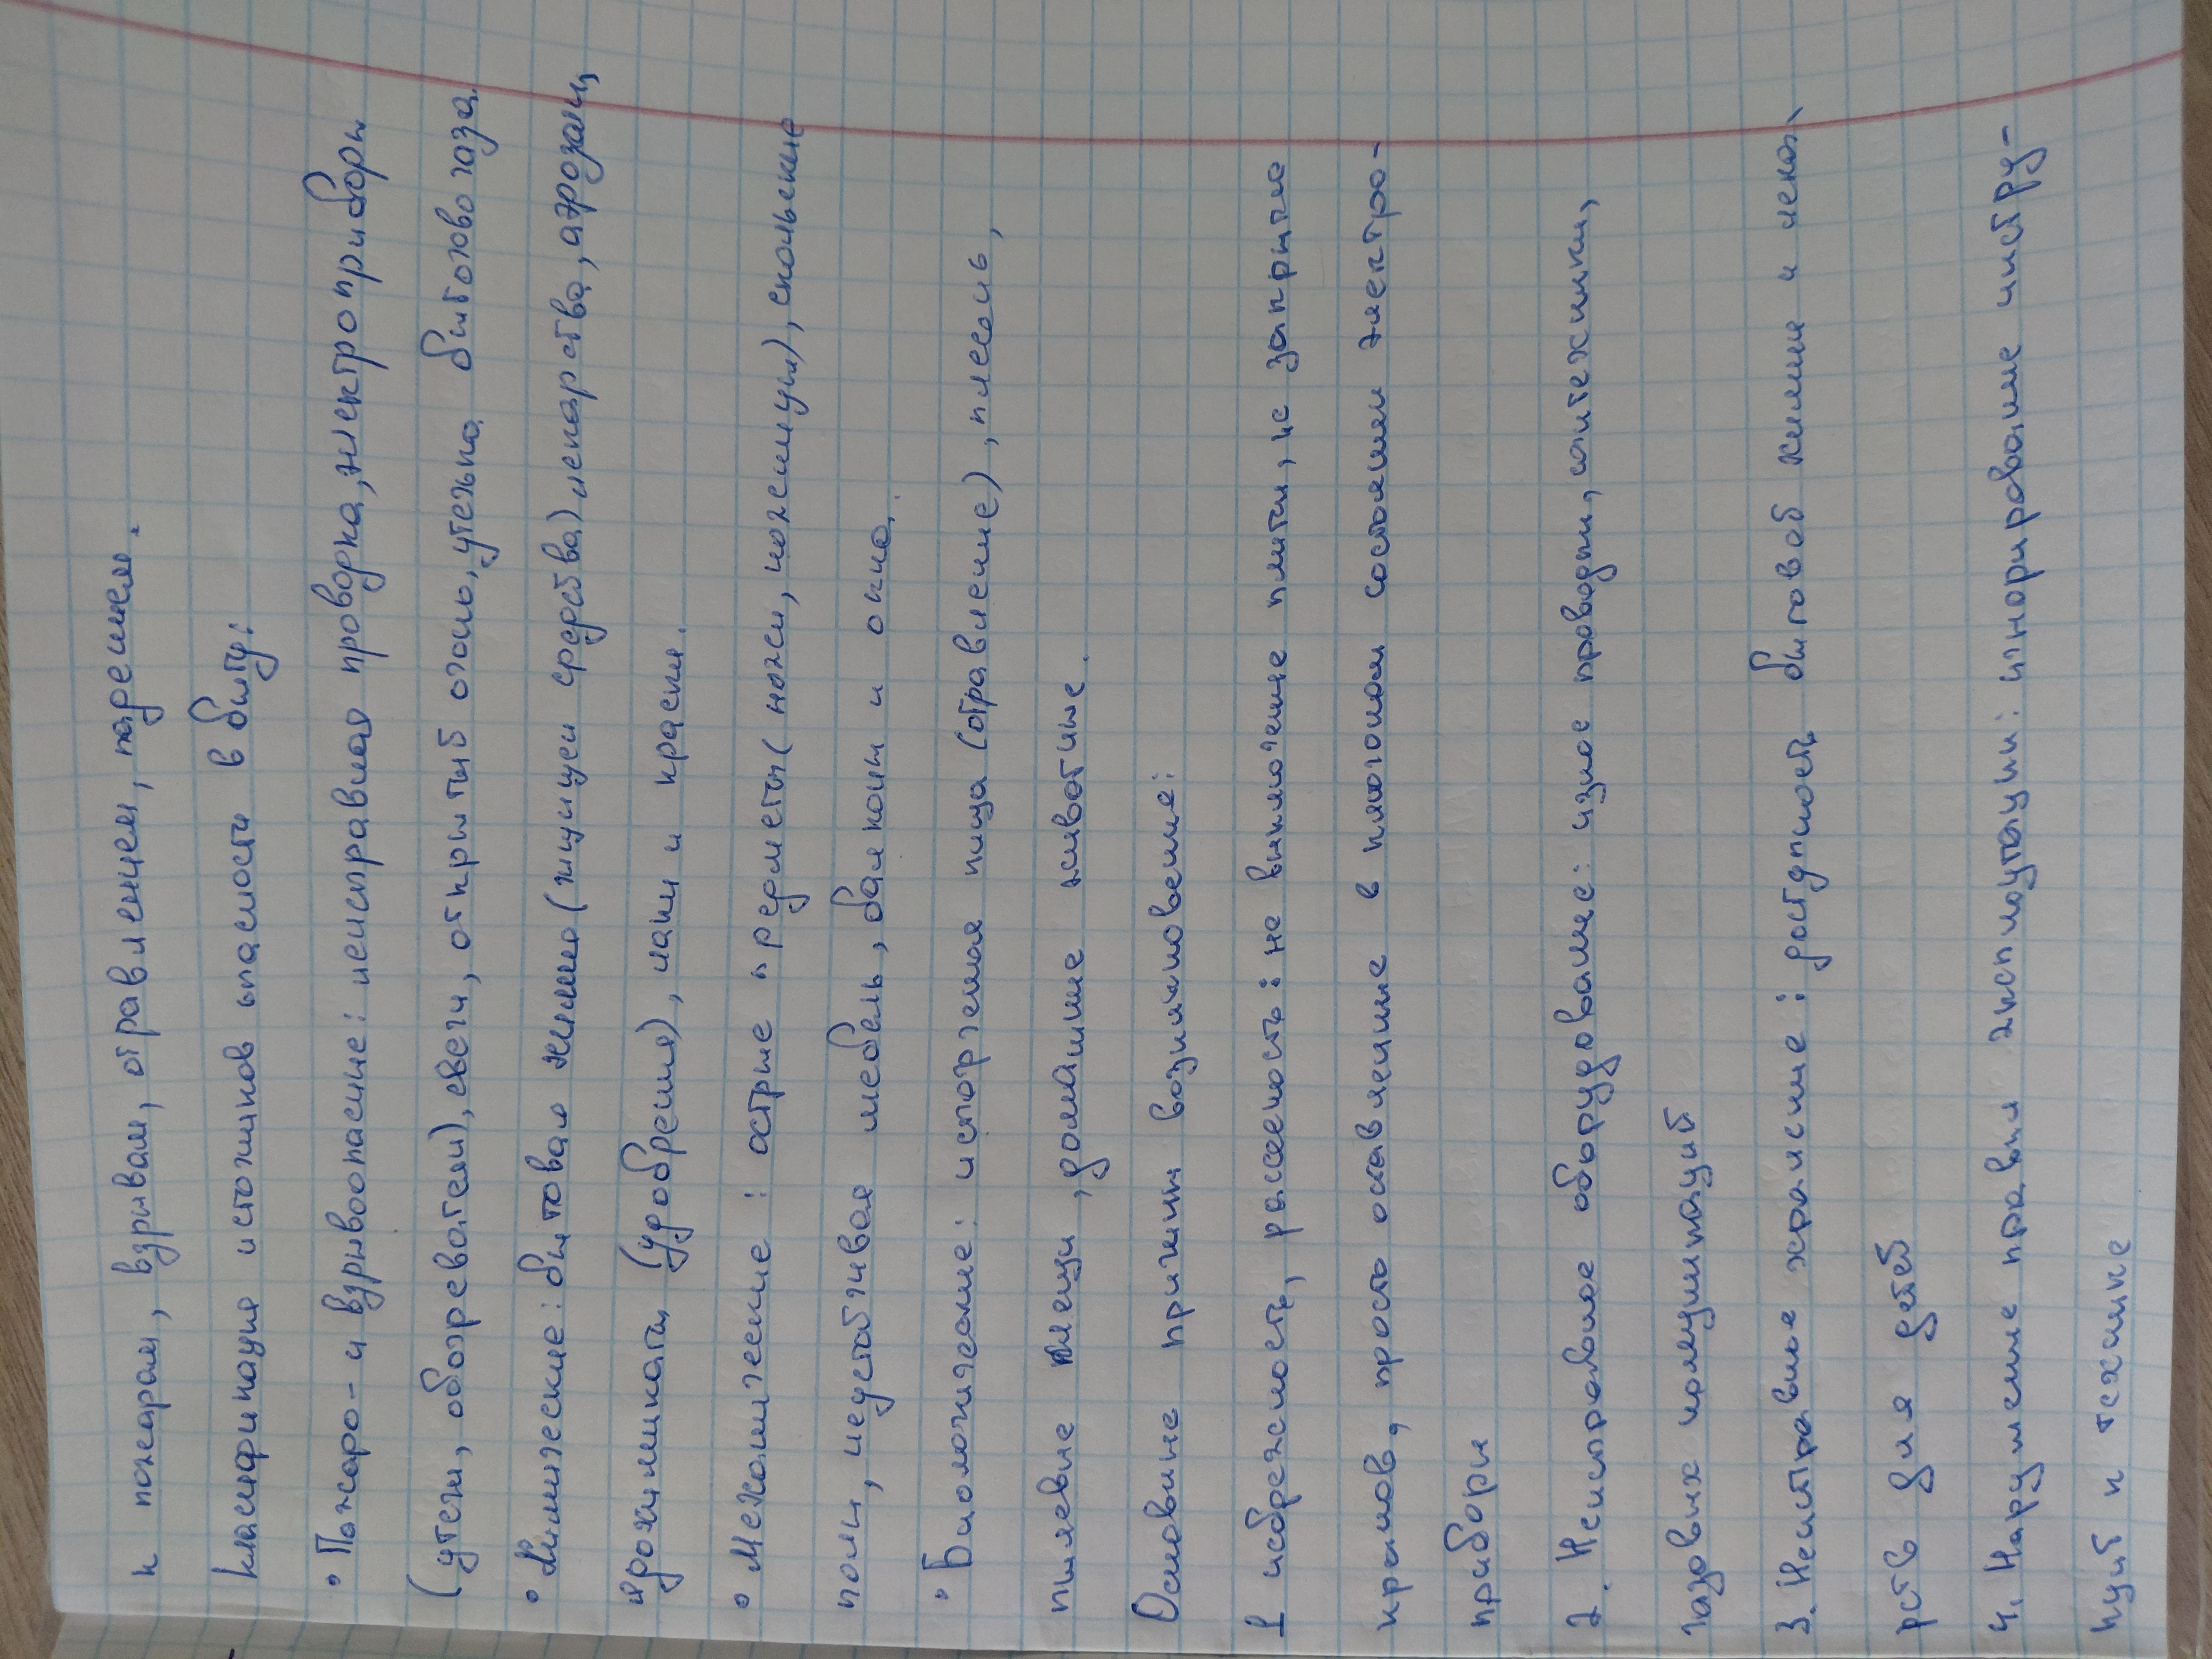 к пожарам, взрывам, отравлением, парением.
Класификация источников опасности в быту:
• Пожаро- и взрывоопасние: неисправная проводка, электроприборы
(утюги, обогреватели), свечи, открытый огонь, утечка бытового газа.
• Химические: бытовая химия (чищищеи средства) лекарства, аэрозали,
ядрохимикаты (удобрения), лаки и краски.
• Механические: острые предметы (ножи, ножницы), скользкие
полы, неустойчивая мебель, балконы и окна.
• Биологические: испорченая пища (отравление), плесень,
пылевые клещи, домашние животные.
Основние причины возникновения:
1 небрежность, расеяность: не выключение плиты, не закрытие
кранов, просто оставление в плохом состоянии электро-
прибори
2. Неисправное оборудование: износ проводки, сантехники,
газовых комуникаций
3. Неисправлное хранение: доступность бытовой химии и лекар
рств для детей
4. Нарушение правил эксплуатации: игнорирование инстру-
кций к технике